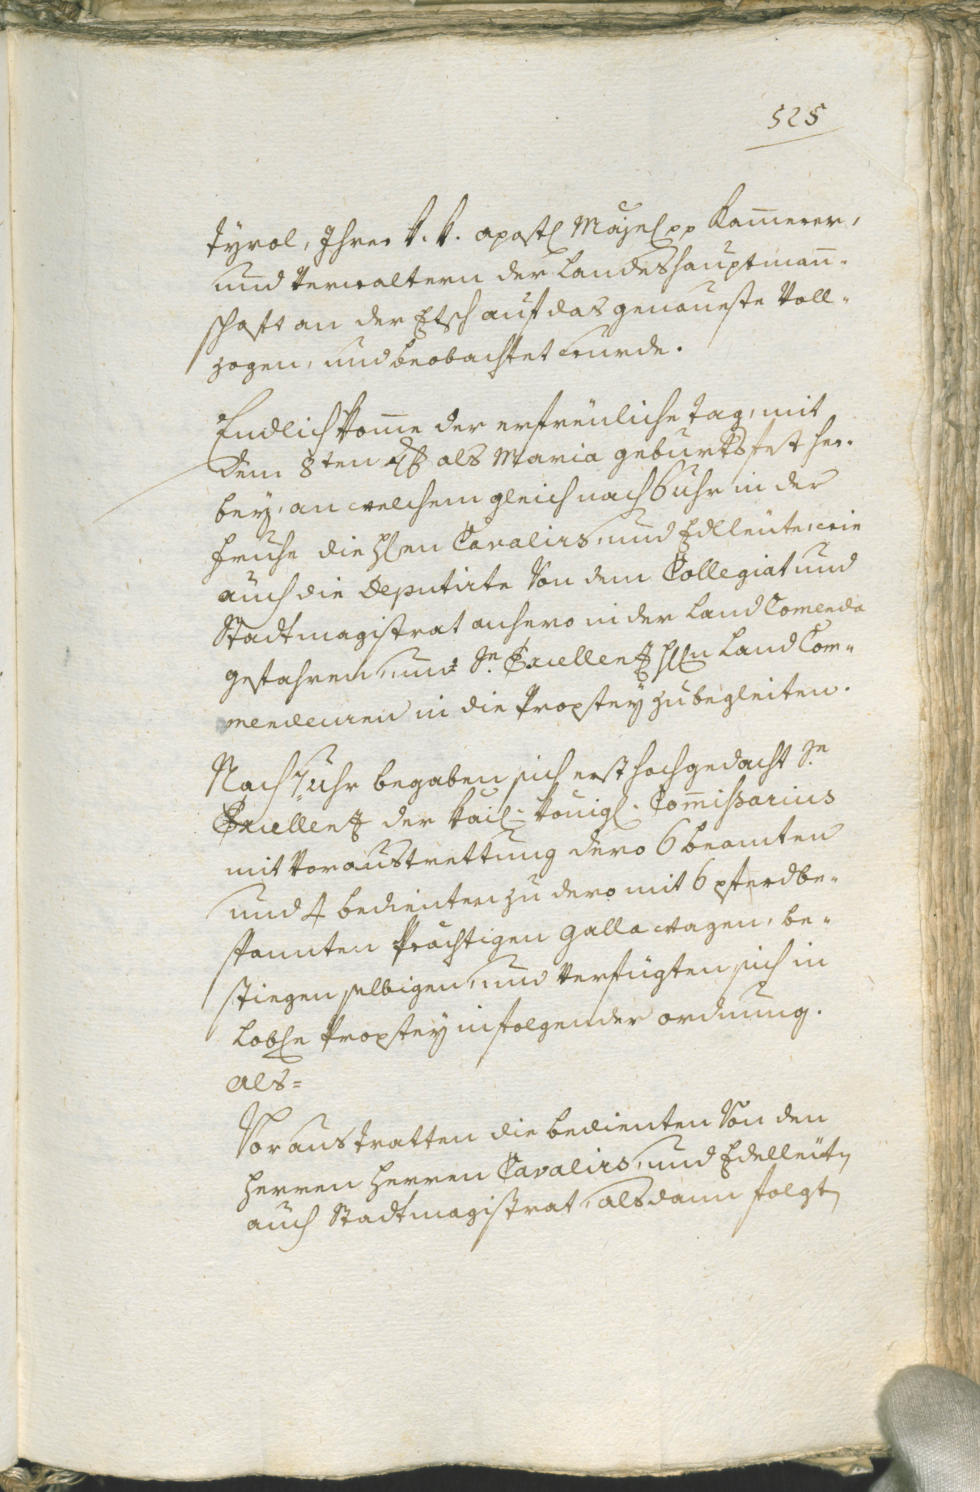 525
Tyrol, Ihrer K. K. apostl Majest pp Kammerer,
und Verwaltern der Landeshauptman̄-
schafft an der Etsch auf das genaueste Voll-
zogen, und beobachtet wurde.
Endlich kom̄e der erfreüliche Tag, mit
dem 8ten 7b als Maria geburthsfest her-
bey, an welchem gleich nach 6 uhr in der
fruhe die hlen Cavaliers, und Edlleüte, wie
auch die Deputirte Von dem Collegiat und
Stadtmagistrat anhero in der Land Comenda
gefahren, um Se. Excellenz hlln Land Com-
mendeuren in die Propstey zu begleiten.
Nach 7 uhr begaben sich erst hochgedacht Se
Excellenz der Kail: Königl. Com̄ißarius
mit Voraustrettung dero 6 beamten
und 4 bedienten zu dero mit 6 pferd be-
spannten Prächtigen galla wagen, be-
stiegen selbigen, und Verfügten sich in
Lobhe Propstey in folgender ordnung.
als=
Voraus tratten die bedienten Von den
herren herren Cavaliers, und Edelleüth
auch Stadtmagistrat, alsdann folgt